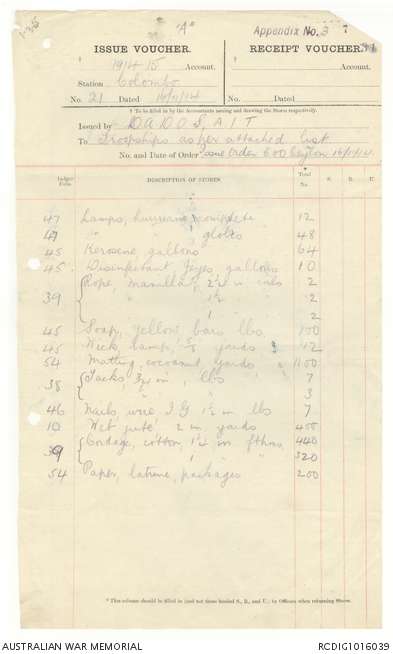 "A"
Appendix No. 3
ISSUE VOUCHER. RECEIPT VOUCHER.
1914-15 Account. Account.
Station Colombo Station
No. 21 Dated 16/11/14 No. Dated
† To be filled in by the Accountants issuing and drawing the Stores respectively.
Issued by DADOS, AIF
To Troopships as per attached list
No. and Date of Order Issue Order 600 Ceylon 16/11/14
Ledger Folio. DESCRIPTION OF STORES. Total No. S. R. U.
47 Lamps, hurricane complete 12
47 " " globes 48
45 Kerosene gallons 64
45 Disinfectant Jeyes, gallons 10
39 Rope, manilla, 2½ in coils 2
" " 1½ " 2
" " 1 " 2
45 Soap, yellow bars lbs 100
45 Wick, lamp, yards 12
54 Matting, cocoanut, yards 1100
38 Tacks, ¾ in, lbs 7
" " 3
46 Nails, wire 1½ in lbs 7
10 jute 2 in yards 400
39 Cordage, cotton, 1¼ in fthms, 440
" " 1 " " 320
54 Paper, latrine, packages 200
* This column should be filled in (and not those headed S., R., and U.) by Officers when returning Stores.
AUSTRALIAN WAR MEMORIAL RCDIG1016039